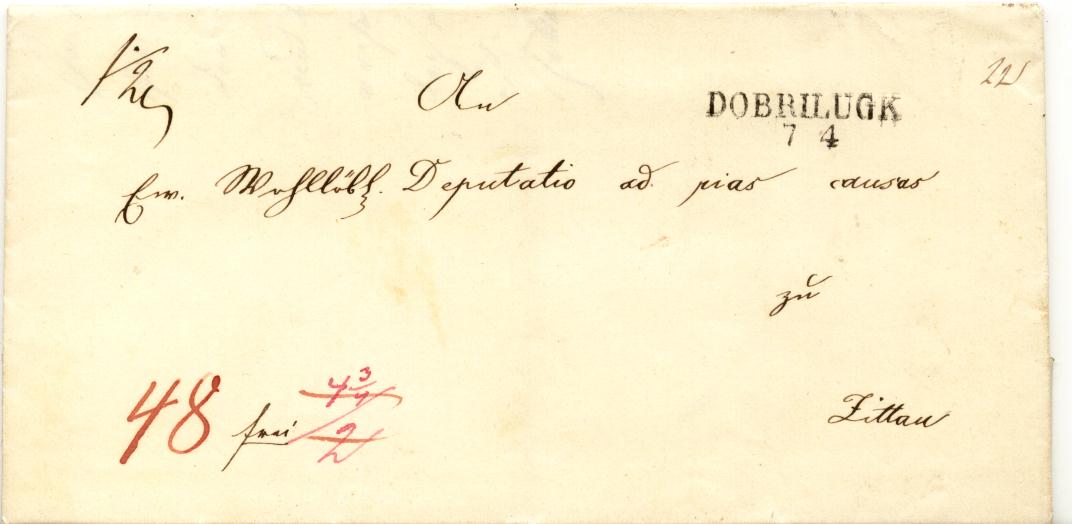 An
DOBRILUGK
7 4
Ew. Wohllöbl. Deputatio ad pias causas
zu
Zittau
48 frei 4 3/4
2